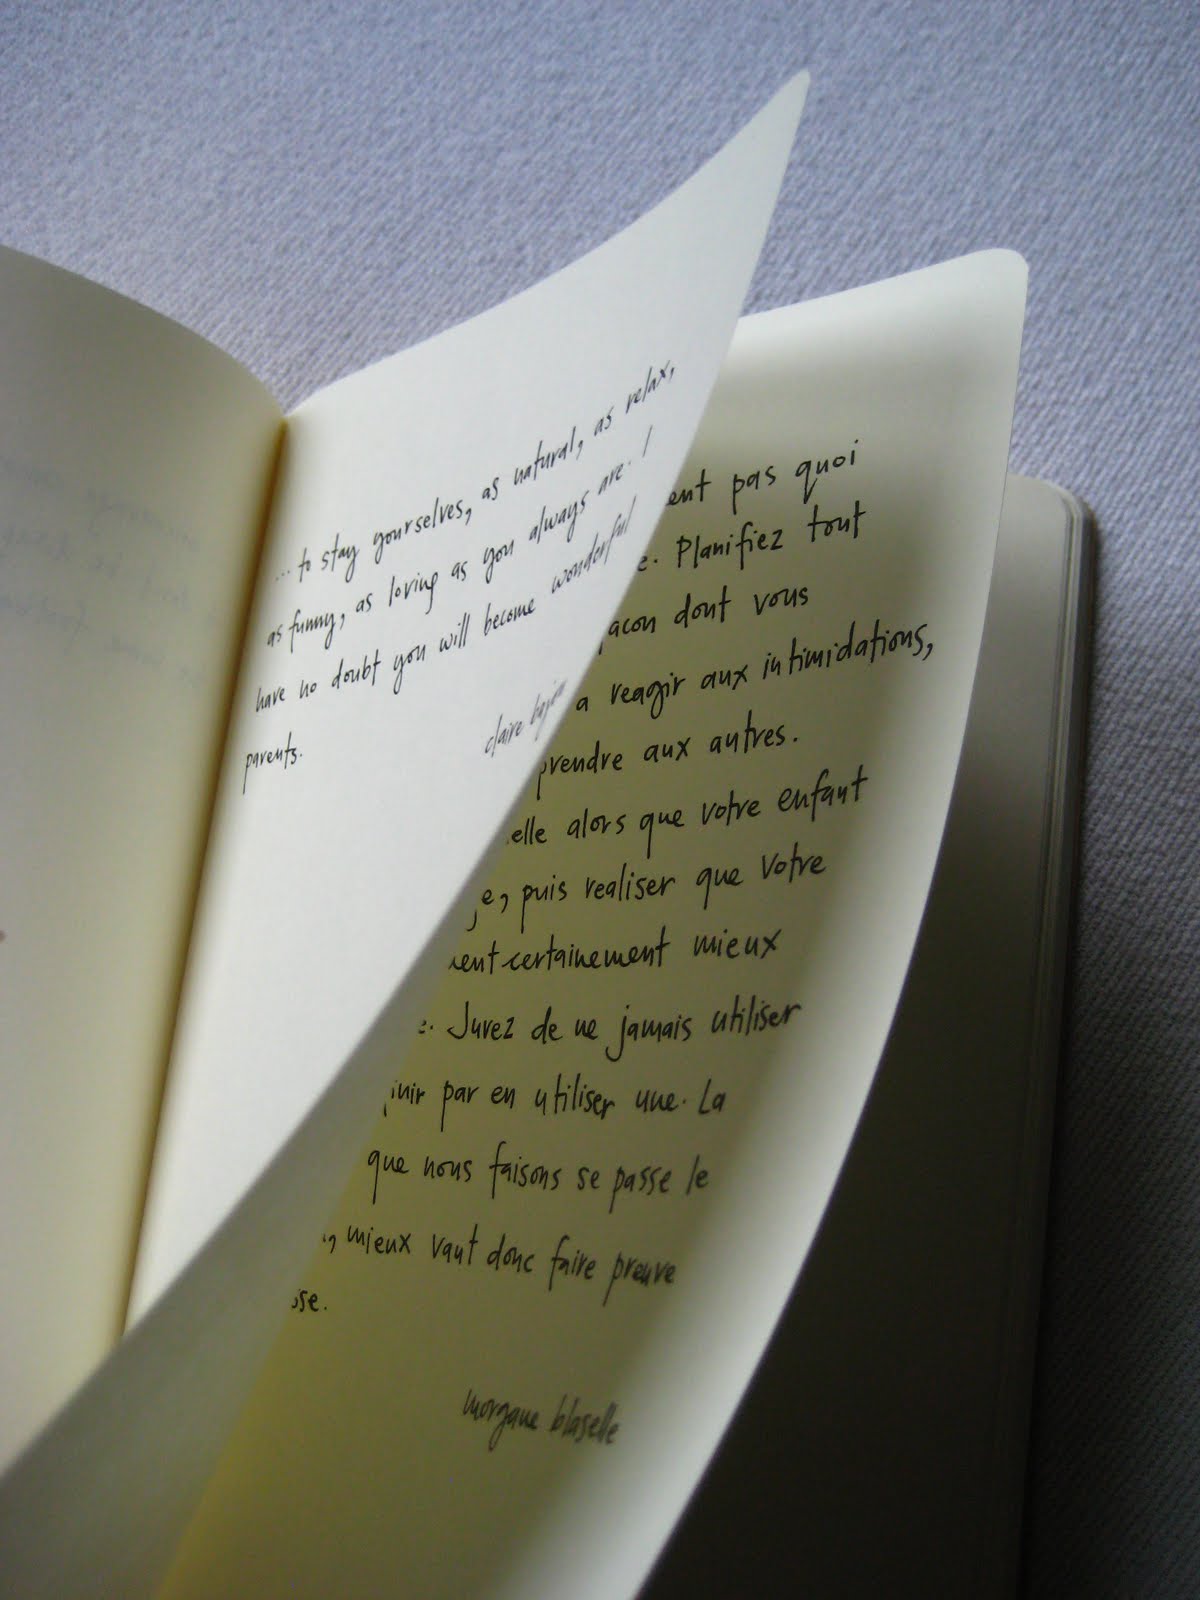 ... to stay yourselves, as natural, as relax,
as funny, as loving as you always are. I
have no doubt you will become wonderful
parents.
claire
pas quoi
Planifiez tout
dont vous
a reagir aux intimidations,
prendre aux autres.
alors que votre enfant
puis realiser que votre
certainement mieux
Jurez de ne jamais utiliser
par en utiliser une. La
que nous faisons se passe le
mieux vaut donc faire preuve
morgane blaselle